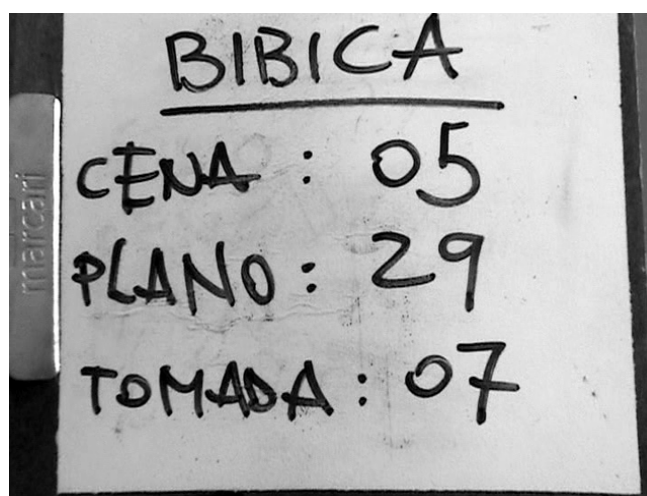 BIBICA
CENA : 05
PLANO : 29
TOMADA : 07
marcari